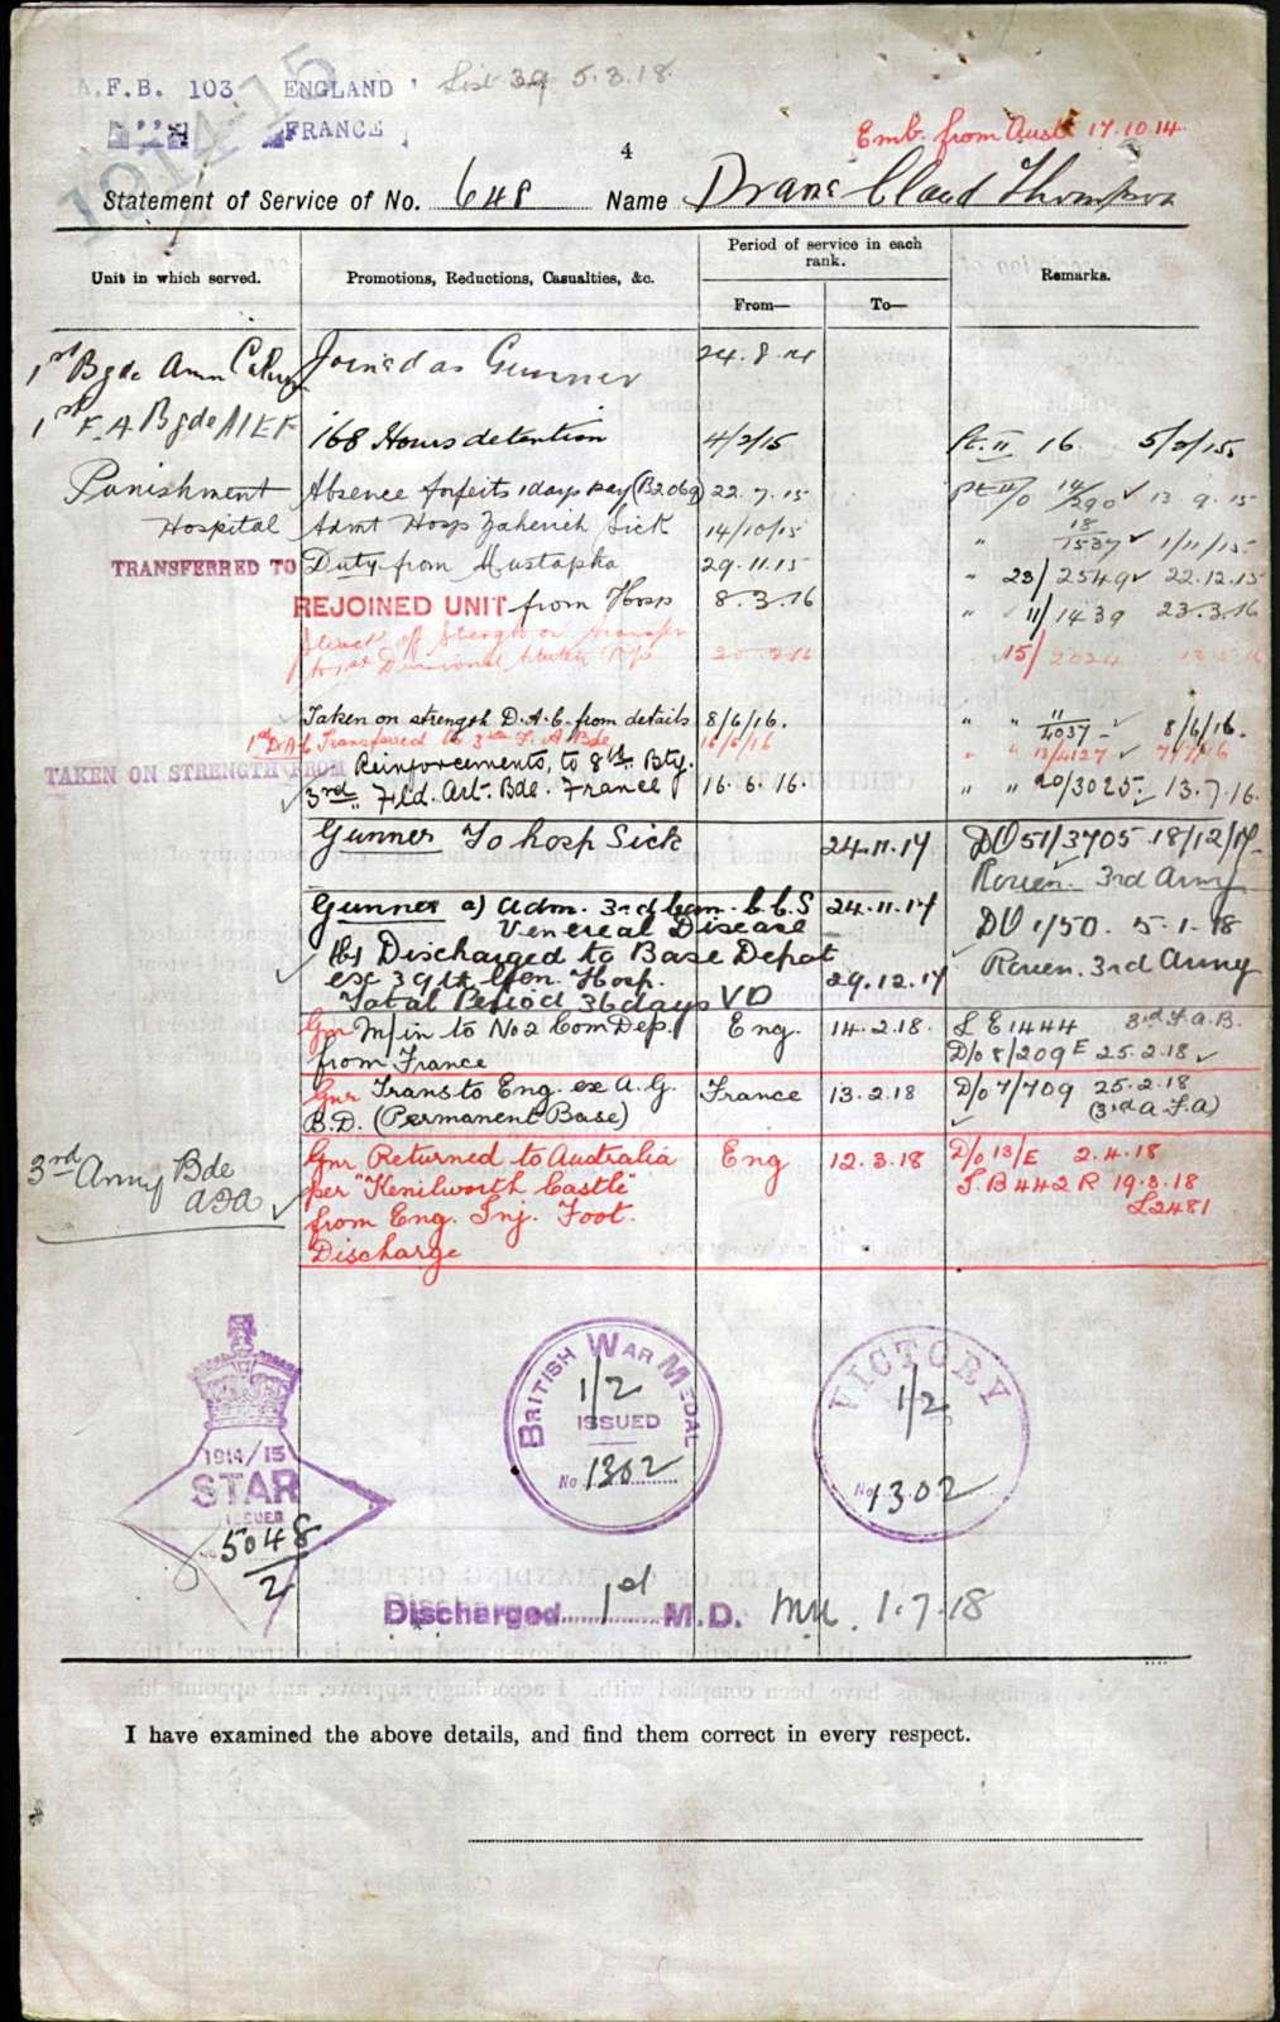 A.F.B. 103 ENGLAND List 39 5.3.18.
1914-15
FRANCE
Emb. from Aust 17.10.14.
4
Statement of Service of No. 648 Name Drane Claud Thompson
Unit in which served. Promotions, Reductions, Casualties, &c. Period of service in each rank. Remarks.
From— To—
1st Bgde Amn Joined as Gunner 24.8.14
1st F.A Bgde AIEF 168 Hours detention 4/2/15 Pt. II 16. 5/2/15
Punishment Absence forfeits 1 days pay (B2069) 22.7.15 Pt II/0 14/290 ✓ 13.9.15
Hospital Admt Hosp Sick 14/10/15 " 18/1537 ✓ 1/11/15
TRANSFERRED TO Duty from Mustapha 29.11.15 " 23/2549 ✓ 22.12.15
REJOINED UNIT from Hosp 8.3.16 " 11/1439 23.3.16
Struck off Strength on transfer
to 1st Divisional 15/2024
Taken on strength D.A.C. from details 8/6/16. " " 11/4037 ✓ 8/6/16.
1st DAC Transferred to 3rd F. A Bde 16/6/16 " " 13/4127 ✓ 7/7/16
TAKEN ON STRENGTH FROM Reinforcements, to 8th Bty.
✓ 3rd Fld. Art. Bde. France 16.6.16. " " 20/3025 ✓ 13.7.16.
Gunner To hosp Sick 24.11.17 DO 51/3705 18/12/17
Rouen. 3rd Army
Gunner a) Adm. 3rd Can. C.C.S 24.11.17
Venereal Disease DO 1/50. 5.1.18
✓ (b) Discharged to Base Depot Rouen. 3rd Army
ex 39th Gen. Hosp. 29.12.17
Total Period 36 days VD
Gnr M/in to No 2 Com Dep. Eng. 14.2.18. L E 1444 3rd F.A.B.
from France D/o 8/209 E 25.2.18 ✓
Gnr Trans to Eng. ex A.G. France 13.2.18 D/o 7/709 25.2.18
B.D. (Permanent Base) (3rd A.F.A)
Gnr Returned to Australia Eng 12.3.18 D/o 13/E 2.4.18
3rd Army Bde per "Kenilworth Castle" S.B 442 R 19.3.18
AFA ✓ from Eng. Inj. Foot. L2481
Discharge
BRITISH WAR MEDAL VICTORY
1/2 1/2
ISSUED
1914/15
STAR
ISSUED
No 1302 No 1302
No 5048/2
Discharged 1st M.D. 1.7.18
I have examined the above details, and find them correct in every respect.